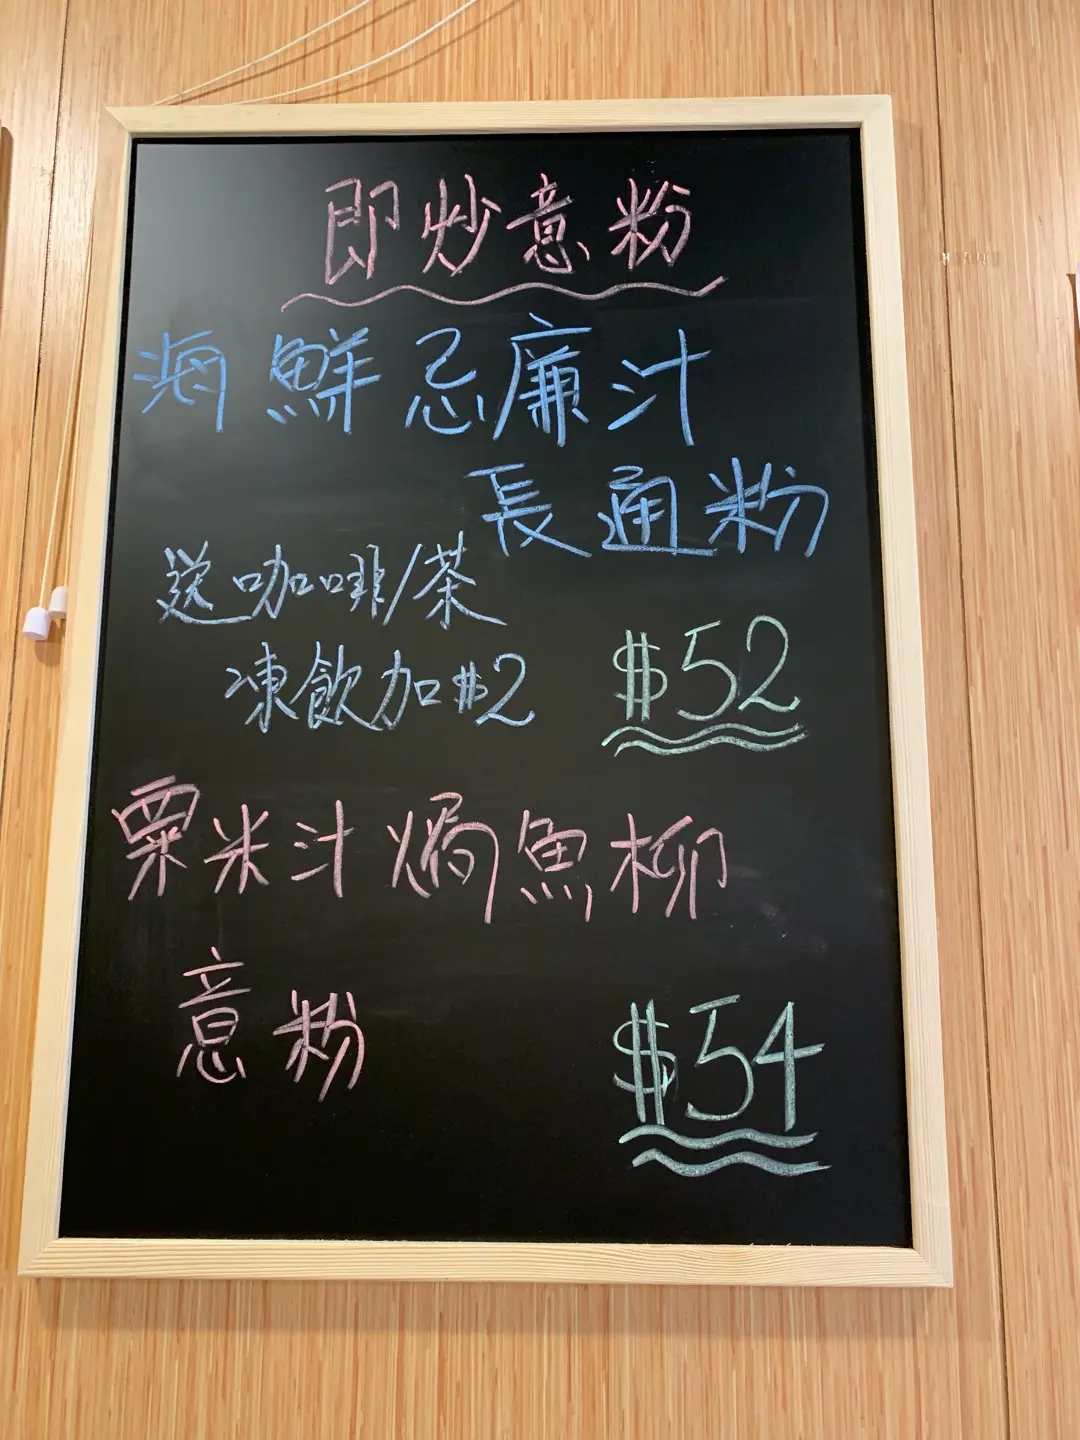 即炒意粉
海鮮忌廉汁
長通粉
送咖啡/茶
凍飲加$2
$52
粟米汁焗魚柳
意粉
$54